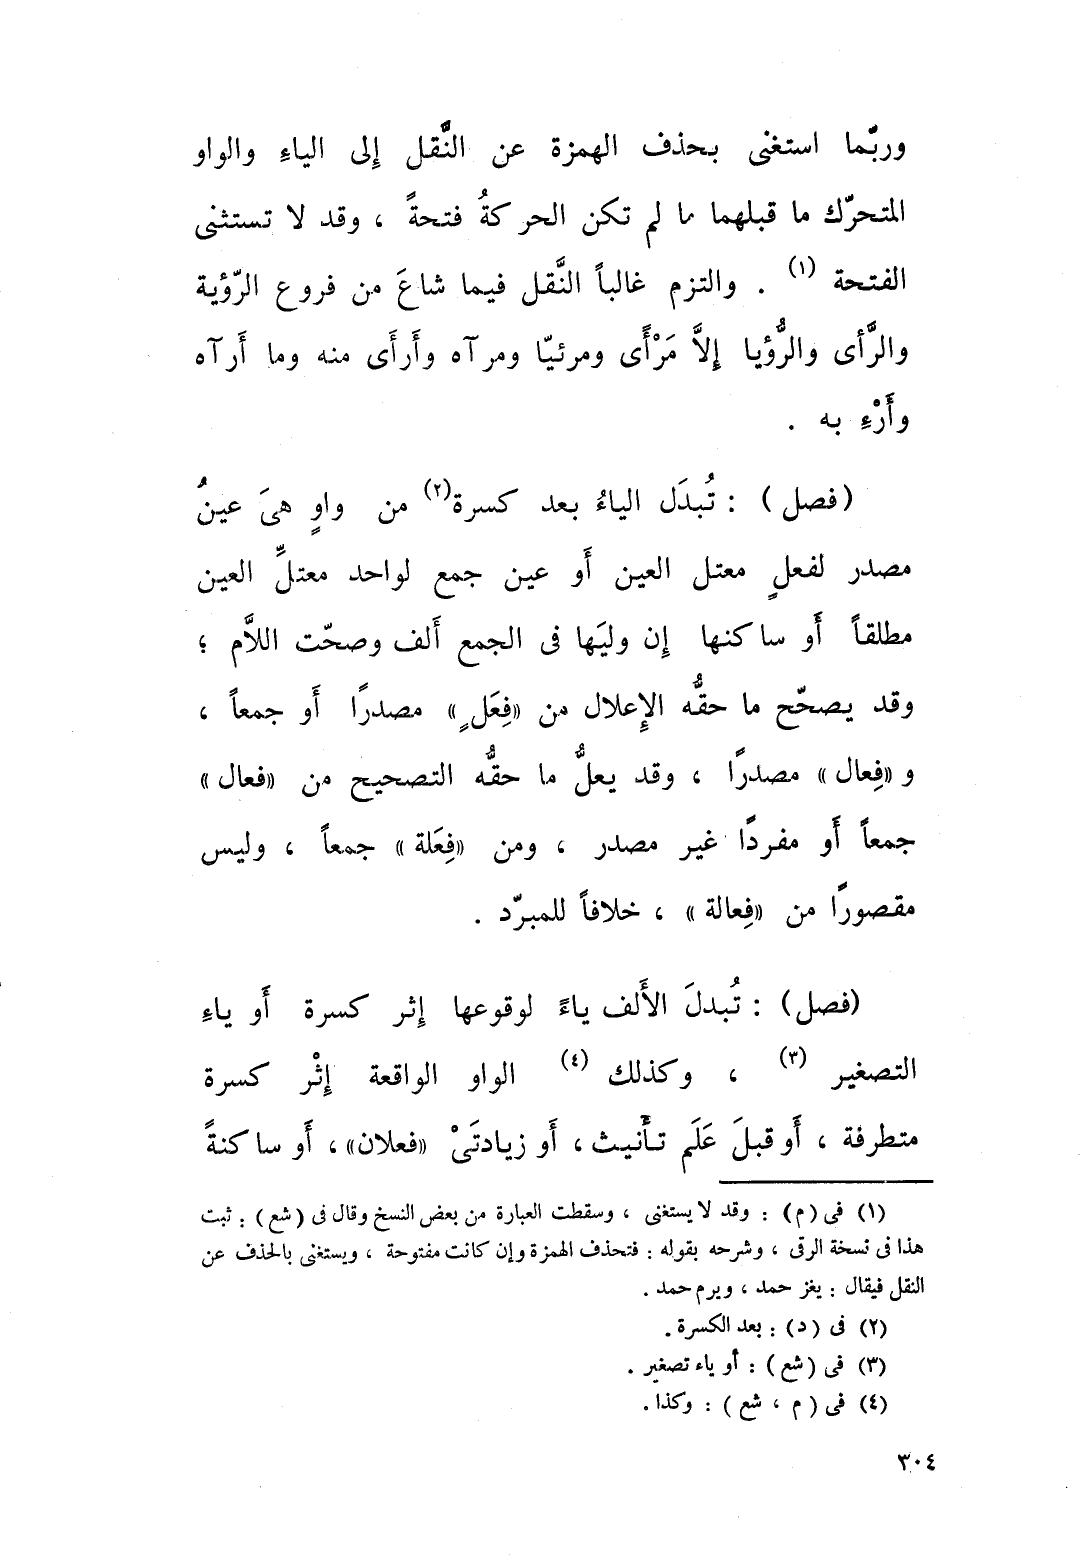 وربّما استغنى بحذف الهمزة عن النَّقل إلى الياءِ والواو
المتحرّك ما قبلهما ما لم تكن الحركةُ فتحةً ، وقد لا تستثنى
الفتحة (١) . والتزم غالباً النَّقل فيما شاعَ من فروع الرّؤية
والرَّأى والرُّؤيا إلاَّ مَرْأًى ومرئيّا ومرآه وأَرأَى منه وما أَرآه
وأَرْءِ به .
(فصل) : تُبدَل الياءُ بعد كسرة(٢) من واوٍ هىَ عينُ
مصدر لفعلٍ معتل العين أَو عين جمع لواحد معتلِّ العين
مطلقاً أَو ساكنها إن وليَها فى الجمع أَلف وصحّت اللاَّم ؛
وقد يصحّح ما حقُّه الإِعلال من «فِعَلٍ» مصدرًا أَو جمعاً ،
و «فِعال» مصدرًا ، وقد يعلُّ ما حقُّه التصحيح من «فعال»
جمعاً أَو مفردًا غير مصدر ، ومن «فِعَلة» جمعاً ، وليس
مقصورًا من «فِعالة» ، خلافاً للمبرّد .
(فصل) : تُبدلَ الأَلف ياءً لوقوعها إثر كسرة أَو ياءِ
التصغير (٣) ، وكذلك (٤) الواو الواقعة إثْر كسرة
متطرفة ، أَو قبلَ عَلَم تأنيث ، أَو زيادتَىْ «فعلان» ، أَو ساكنةً
(١) فى (م) : وقد لا يستغنى ، وسقطت العبارة من بعض النسخ وقال فى (شع) : ثبت
هذا فى نسخة الرقى ، وشرحه بقوله : فتحذف الهمزة وإن كانت مفتوحة ، ويستغنى بالحذف عن
النقل فيقال : يغز حمد ، ويرم حمد .
(٢) فى (د) : بعد الكسرة .
(٣) فى (شع) : أو ياء تصغير .
(٤) فى (م ، شع) : وكذا .
٣٠٤